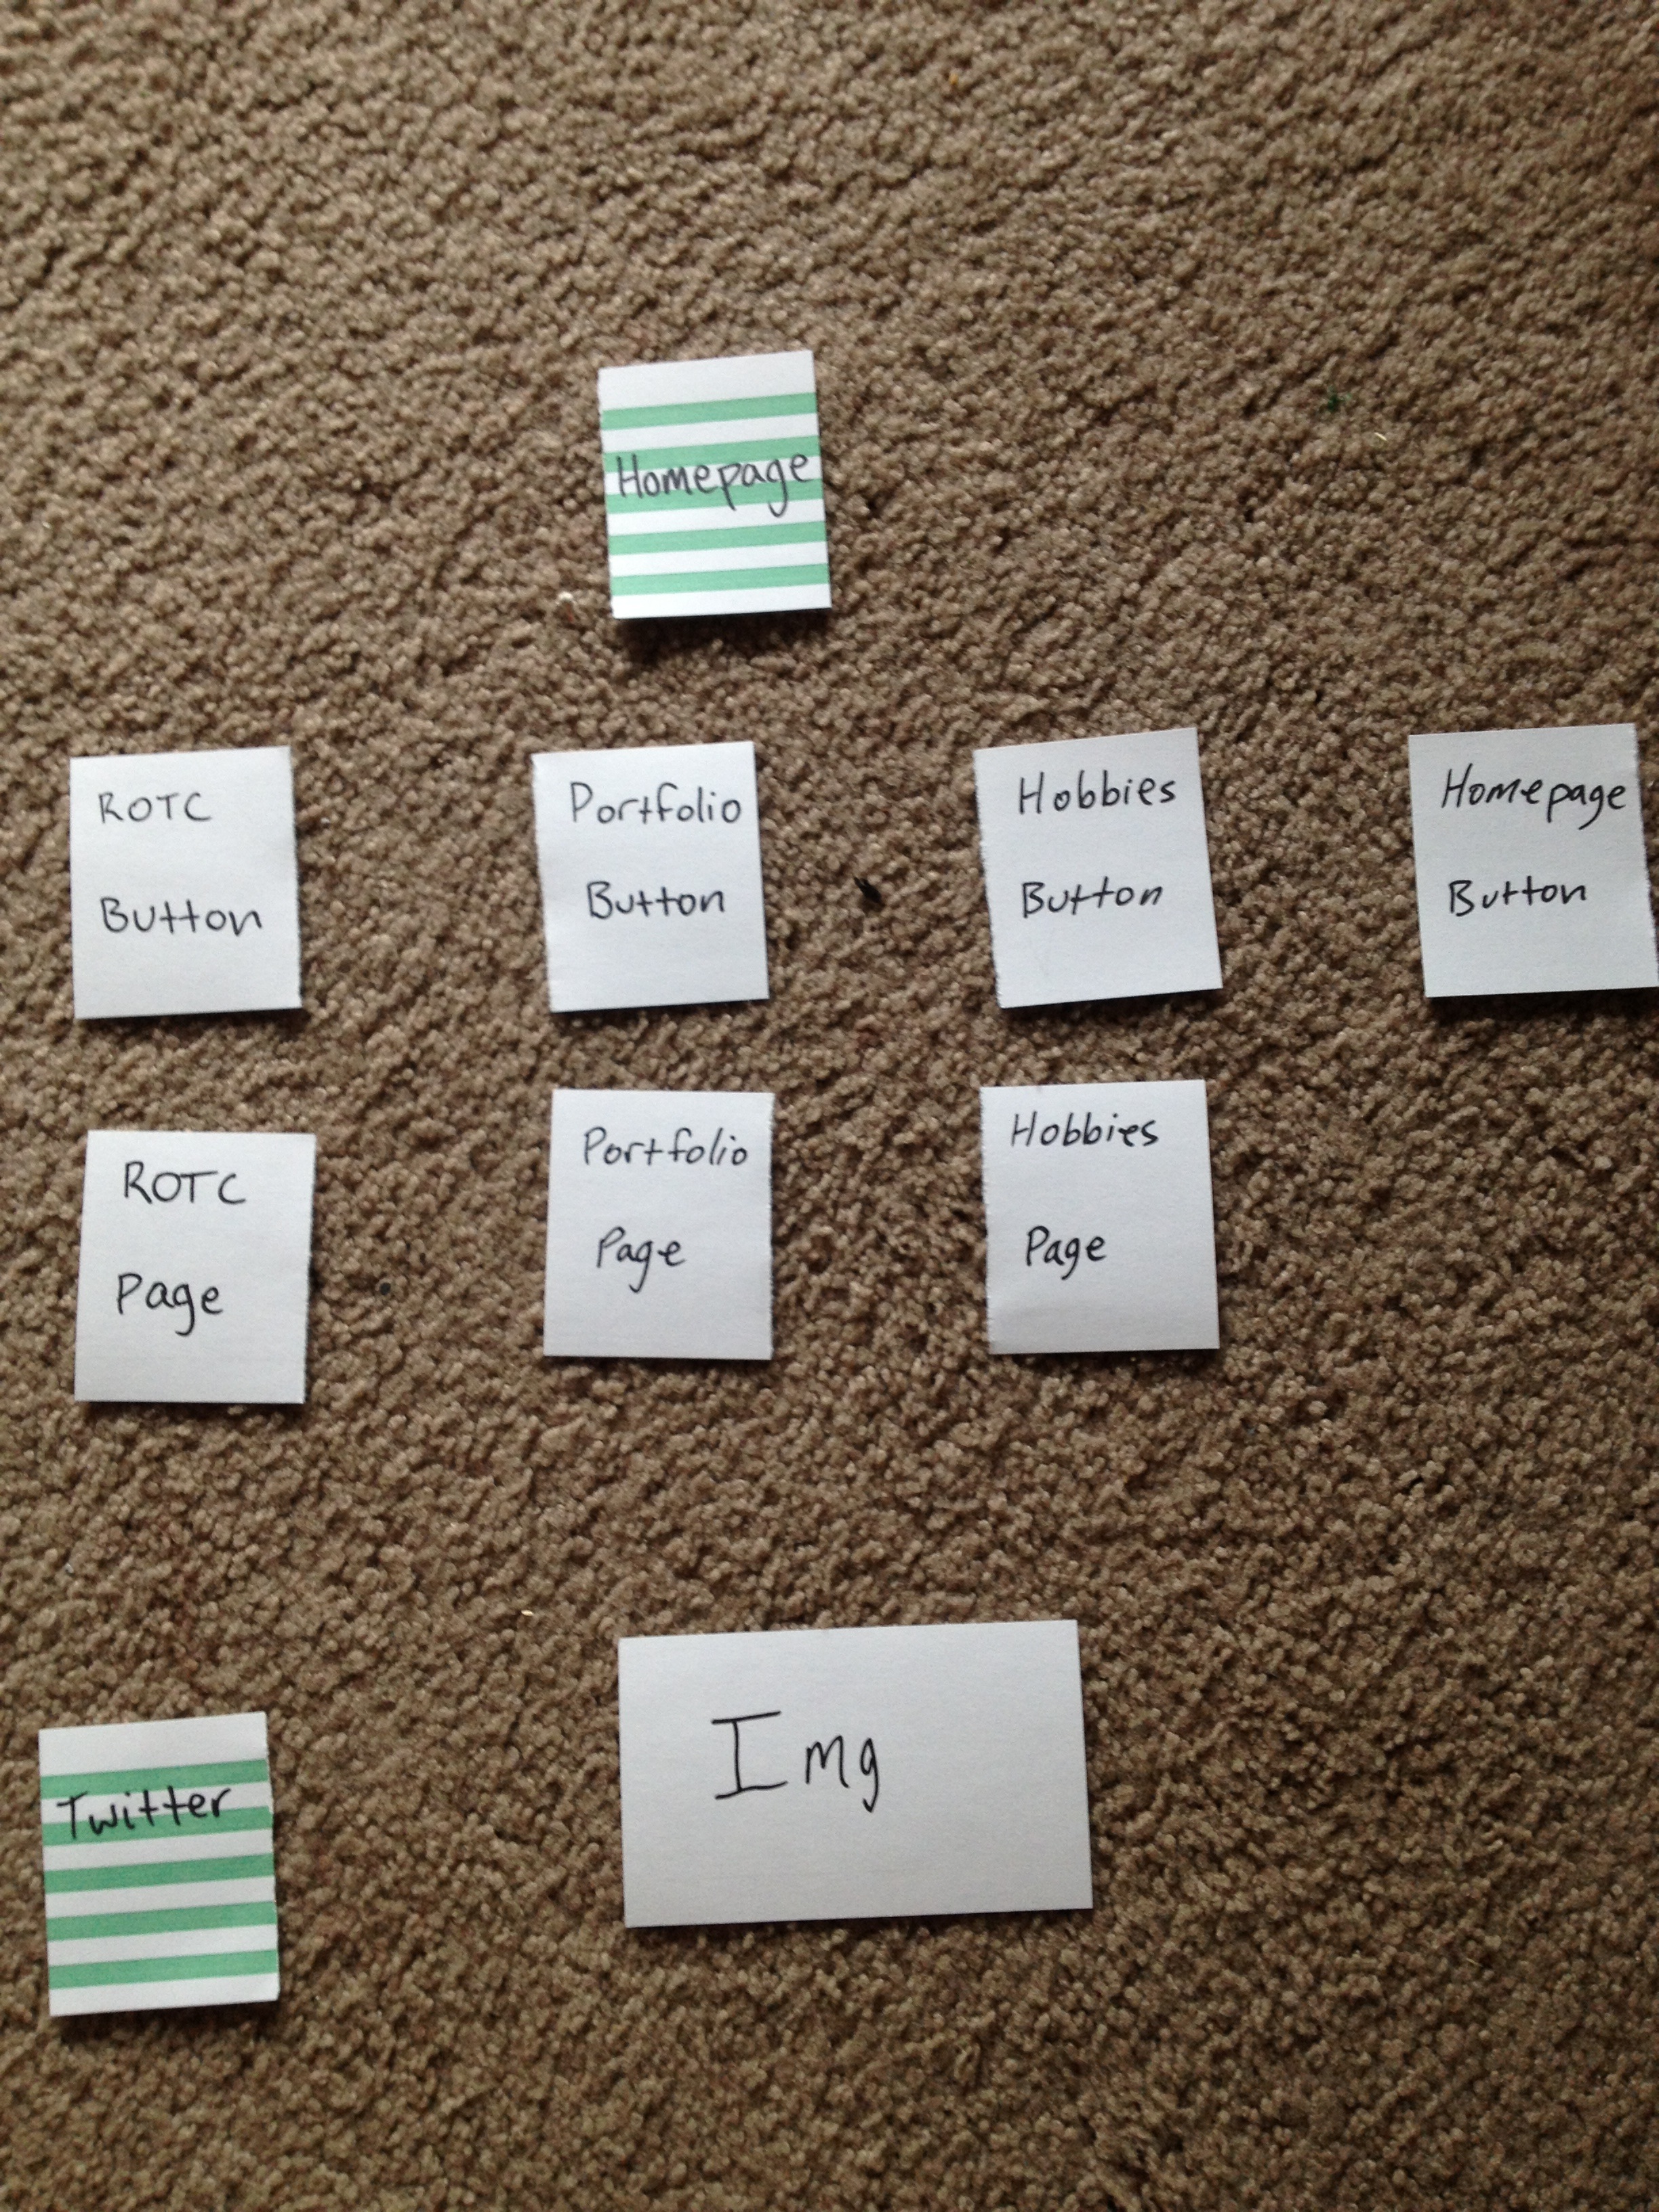 Homepage
ROTC
Button
Portfolio
Button
Hobbies
Button
Homepage
Button
ROTC
Page
Portfolio
Page
Hobbies
Page
Twitter
Img